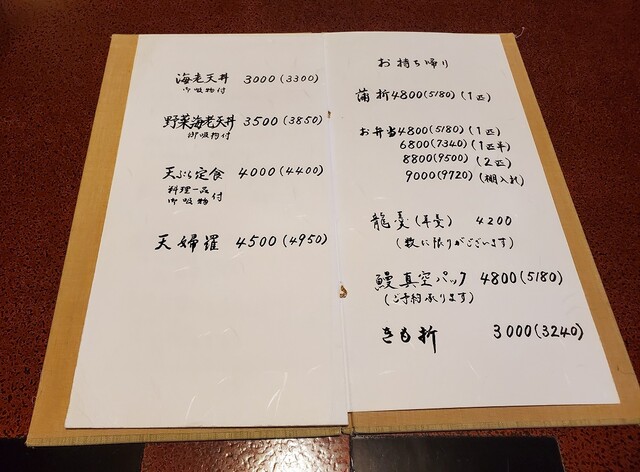 海老天丼 3000(3300)
御吸物付
野菜海老天丼 3500(3850)
御吸物付
天ぷら定食 4000(4400)
料理一品
御吸物付
天婦羅 4500(4950)
お持ち帰り
蒲折 4800(5180)(1匹)
お弁当 4800(5180)(1匹)
6800(7340)(1匹半)
8800(9500)(2匹)
9000(9720)(棚入れ)
龍羹(羊羹) 4200
(数に限りがございます)
鰻真空パック 4800(5180)
(ご予約承ります)
きも折 3000(3240)